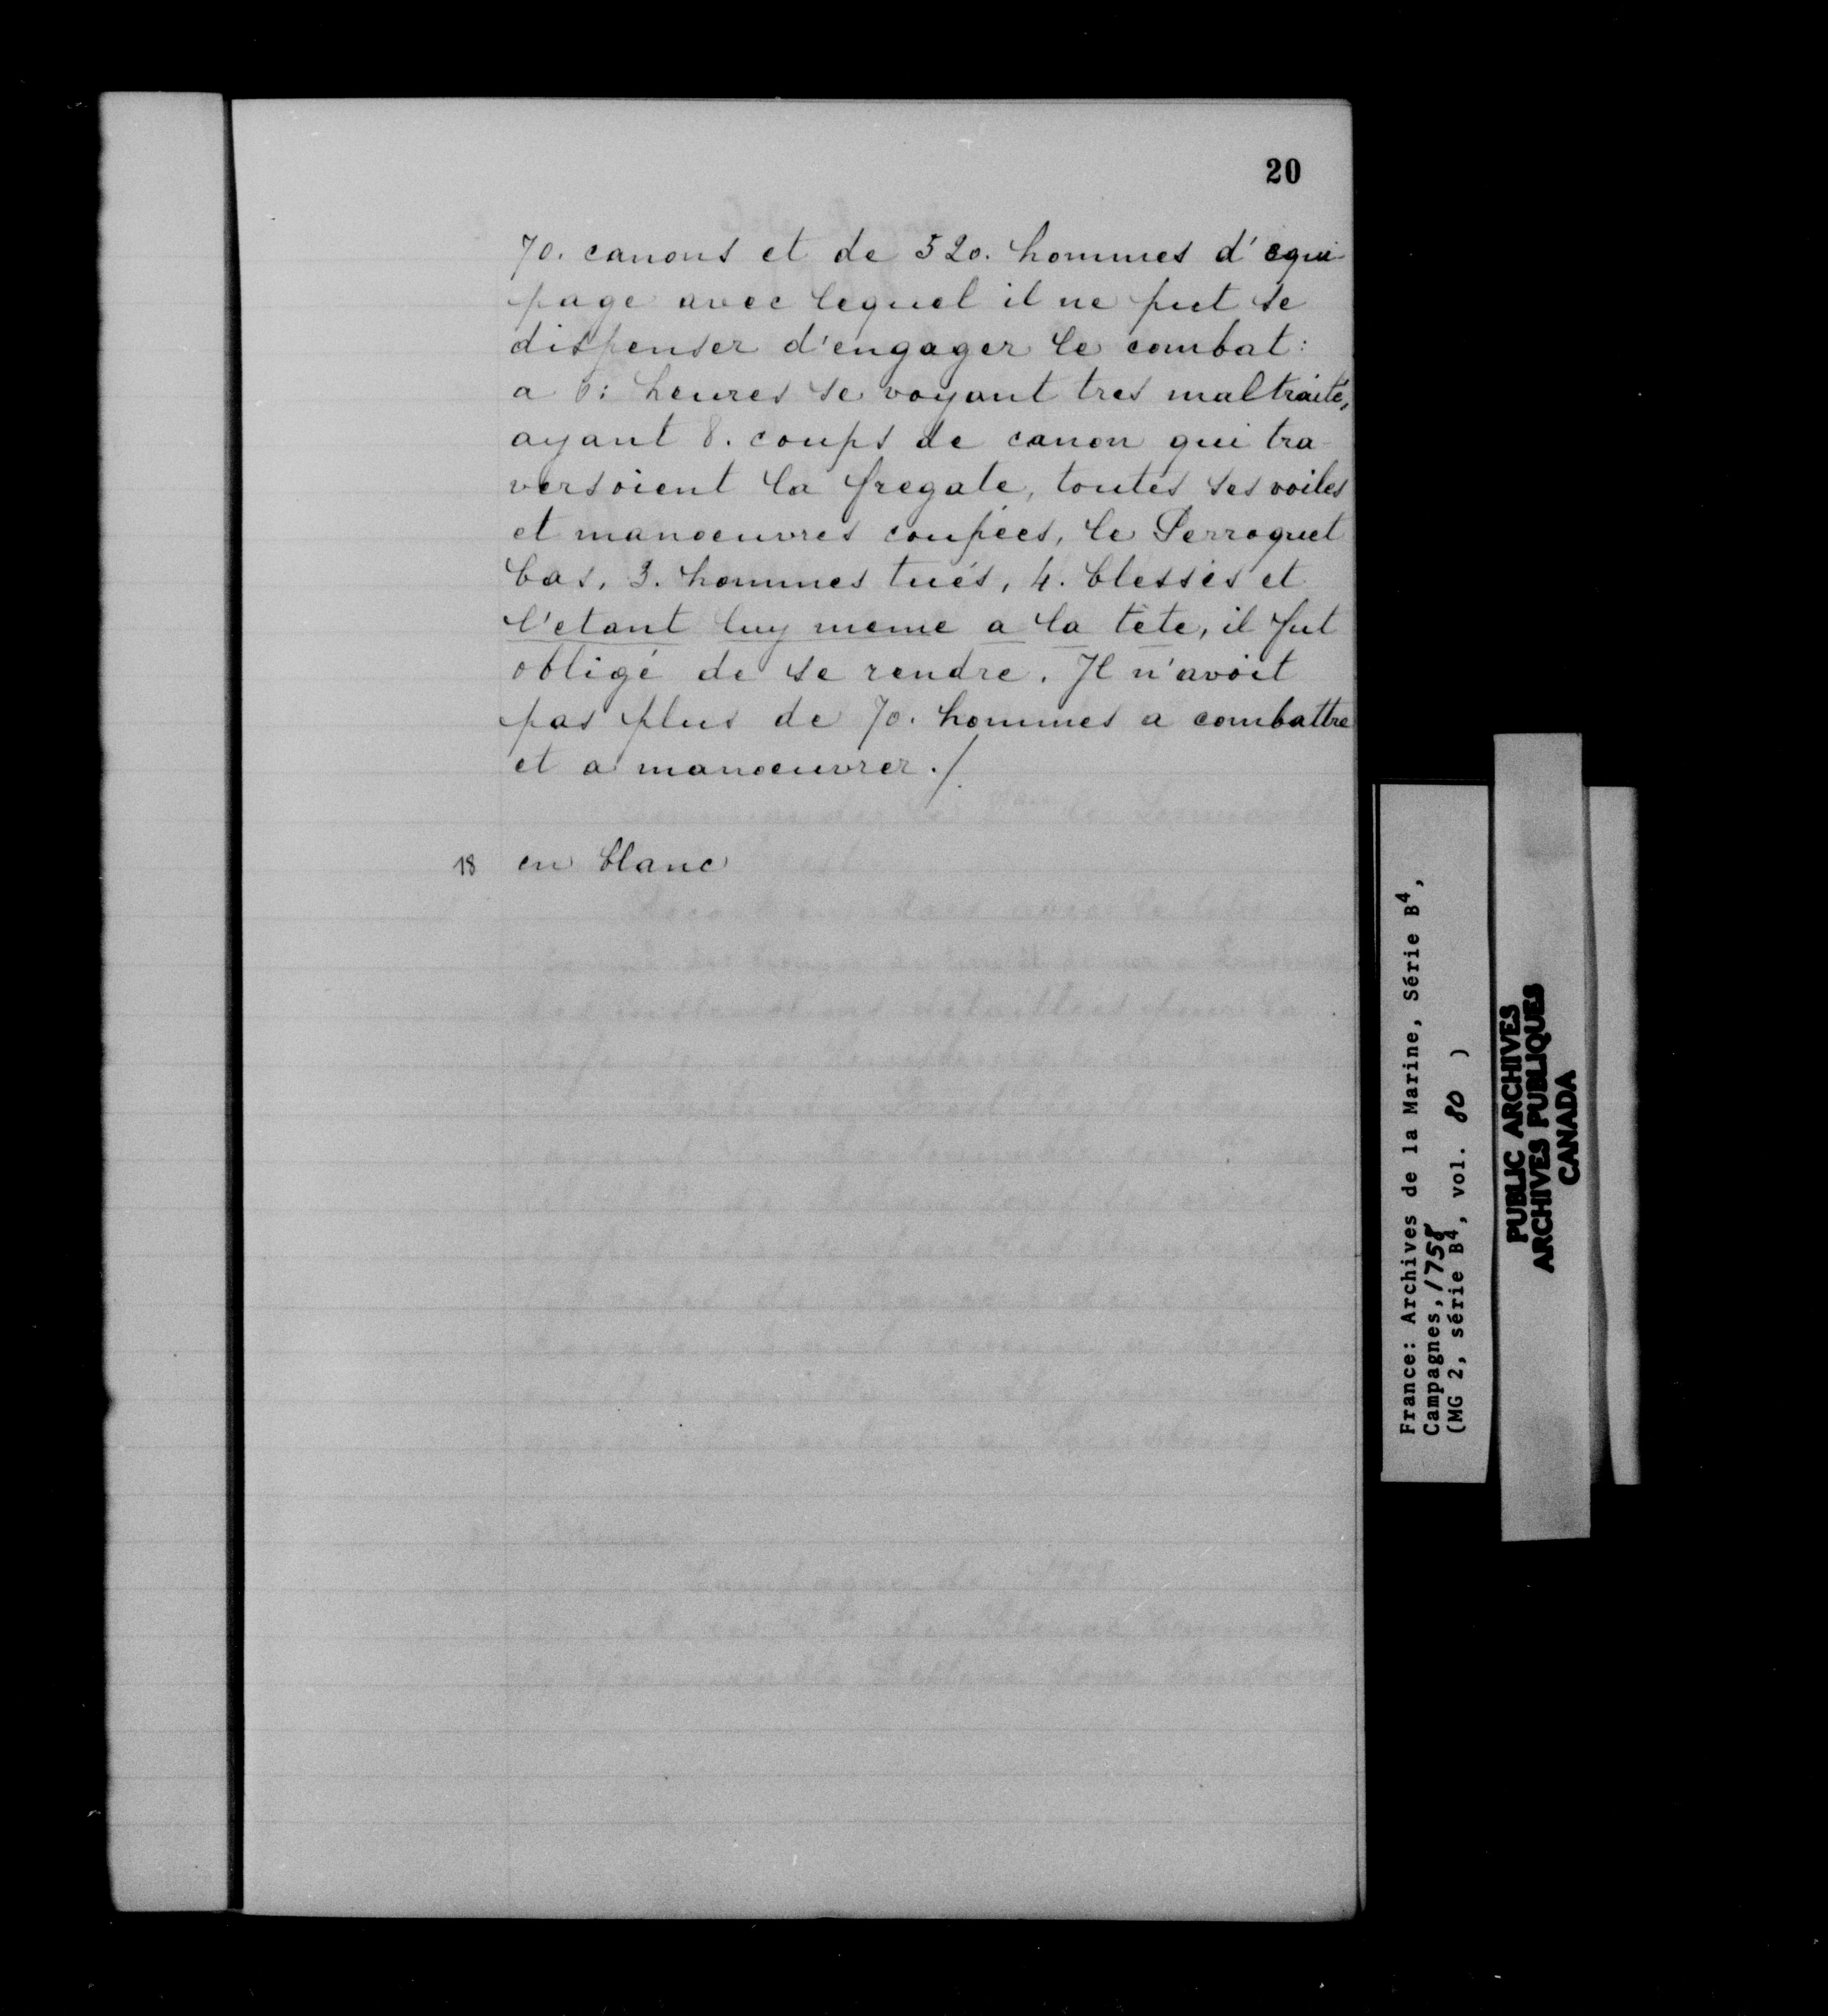 20
70. canons et de 520. hommes d'equi-
page avec lequel il ne put se
dispenser d'engager le combat:
a 6: heures se voyant tres maltraité,
ayant 8. coups de canon qui tra-
versoient la fregate, toutes ses voiles
et manoeuvres coupées, le Perroquet
bas, 3. hommes tués, 4. blessés et
l'etant luy meme a la tête, il fut
obligé de se rendre. Il n'avoit
pas plus de 70. hommes a combattre
et a manoeuvrer./.
18 en blanc
France: Archives de la Marine, Série B4,
Campagnes, 1758
(MG 2, série B4, vol. 80 )
PUBLIC ARCHIVES
ARCHIVES PUBLIQUES
CANADA